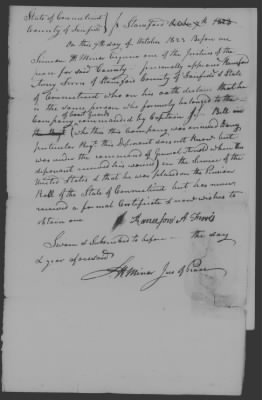 State of Connecticut
County of Fairfield } ss Stamford October 7th 1823
On this 7th day of October 1823 Before me
Simeon H Minor esquire one of the Justices of the
peace for said County personally appears
of Stamford County of Fairfield & State
of Connecticut who on his oath declares that he
is the same person who formerly belonged to the
Company commanded by Captain Bell
of Coast Guards
(whether this Company was annexed to any
particular Regt this deponent does not know but
was under the command of General when the
deponent received his wound) in the service of the
United States & that he was placed on the Pension
Roll of the State of Connecticut but has never
received a formal Certificate & now wishes to
obtain one
Sworn & Subscribed to before me the day
& year aforesaid
S H Minor Jus of Peace